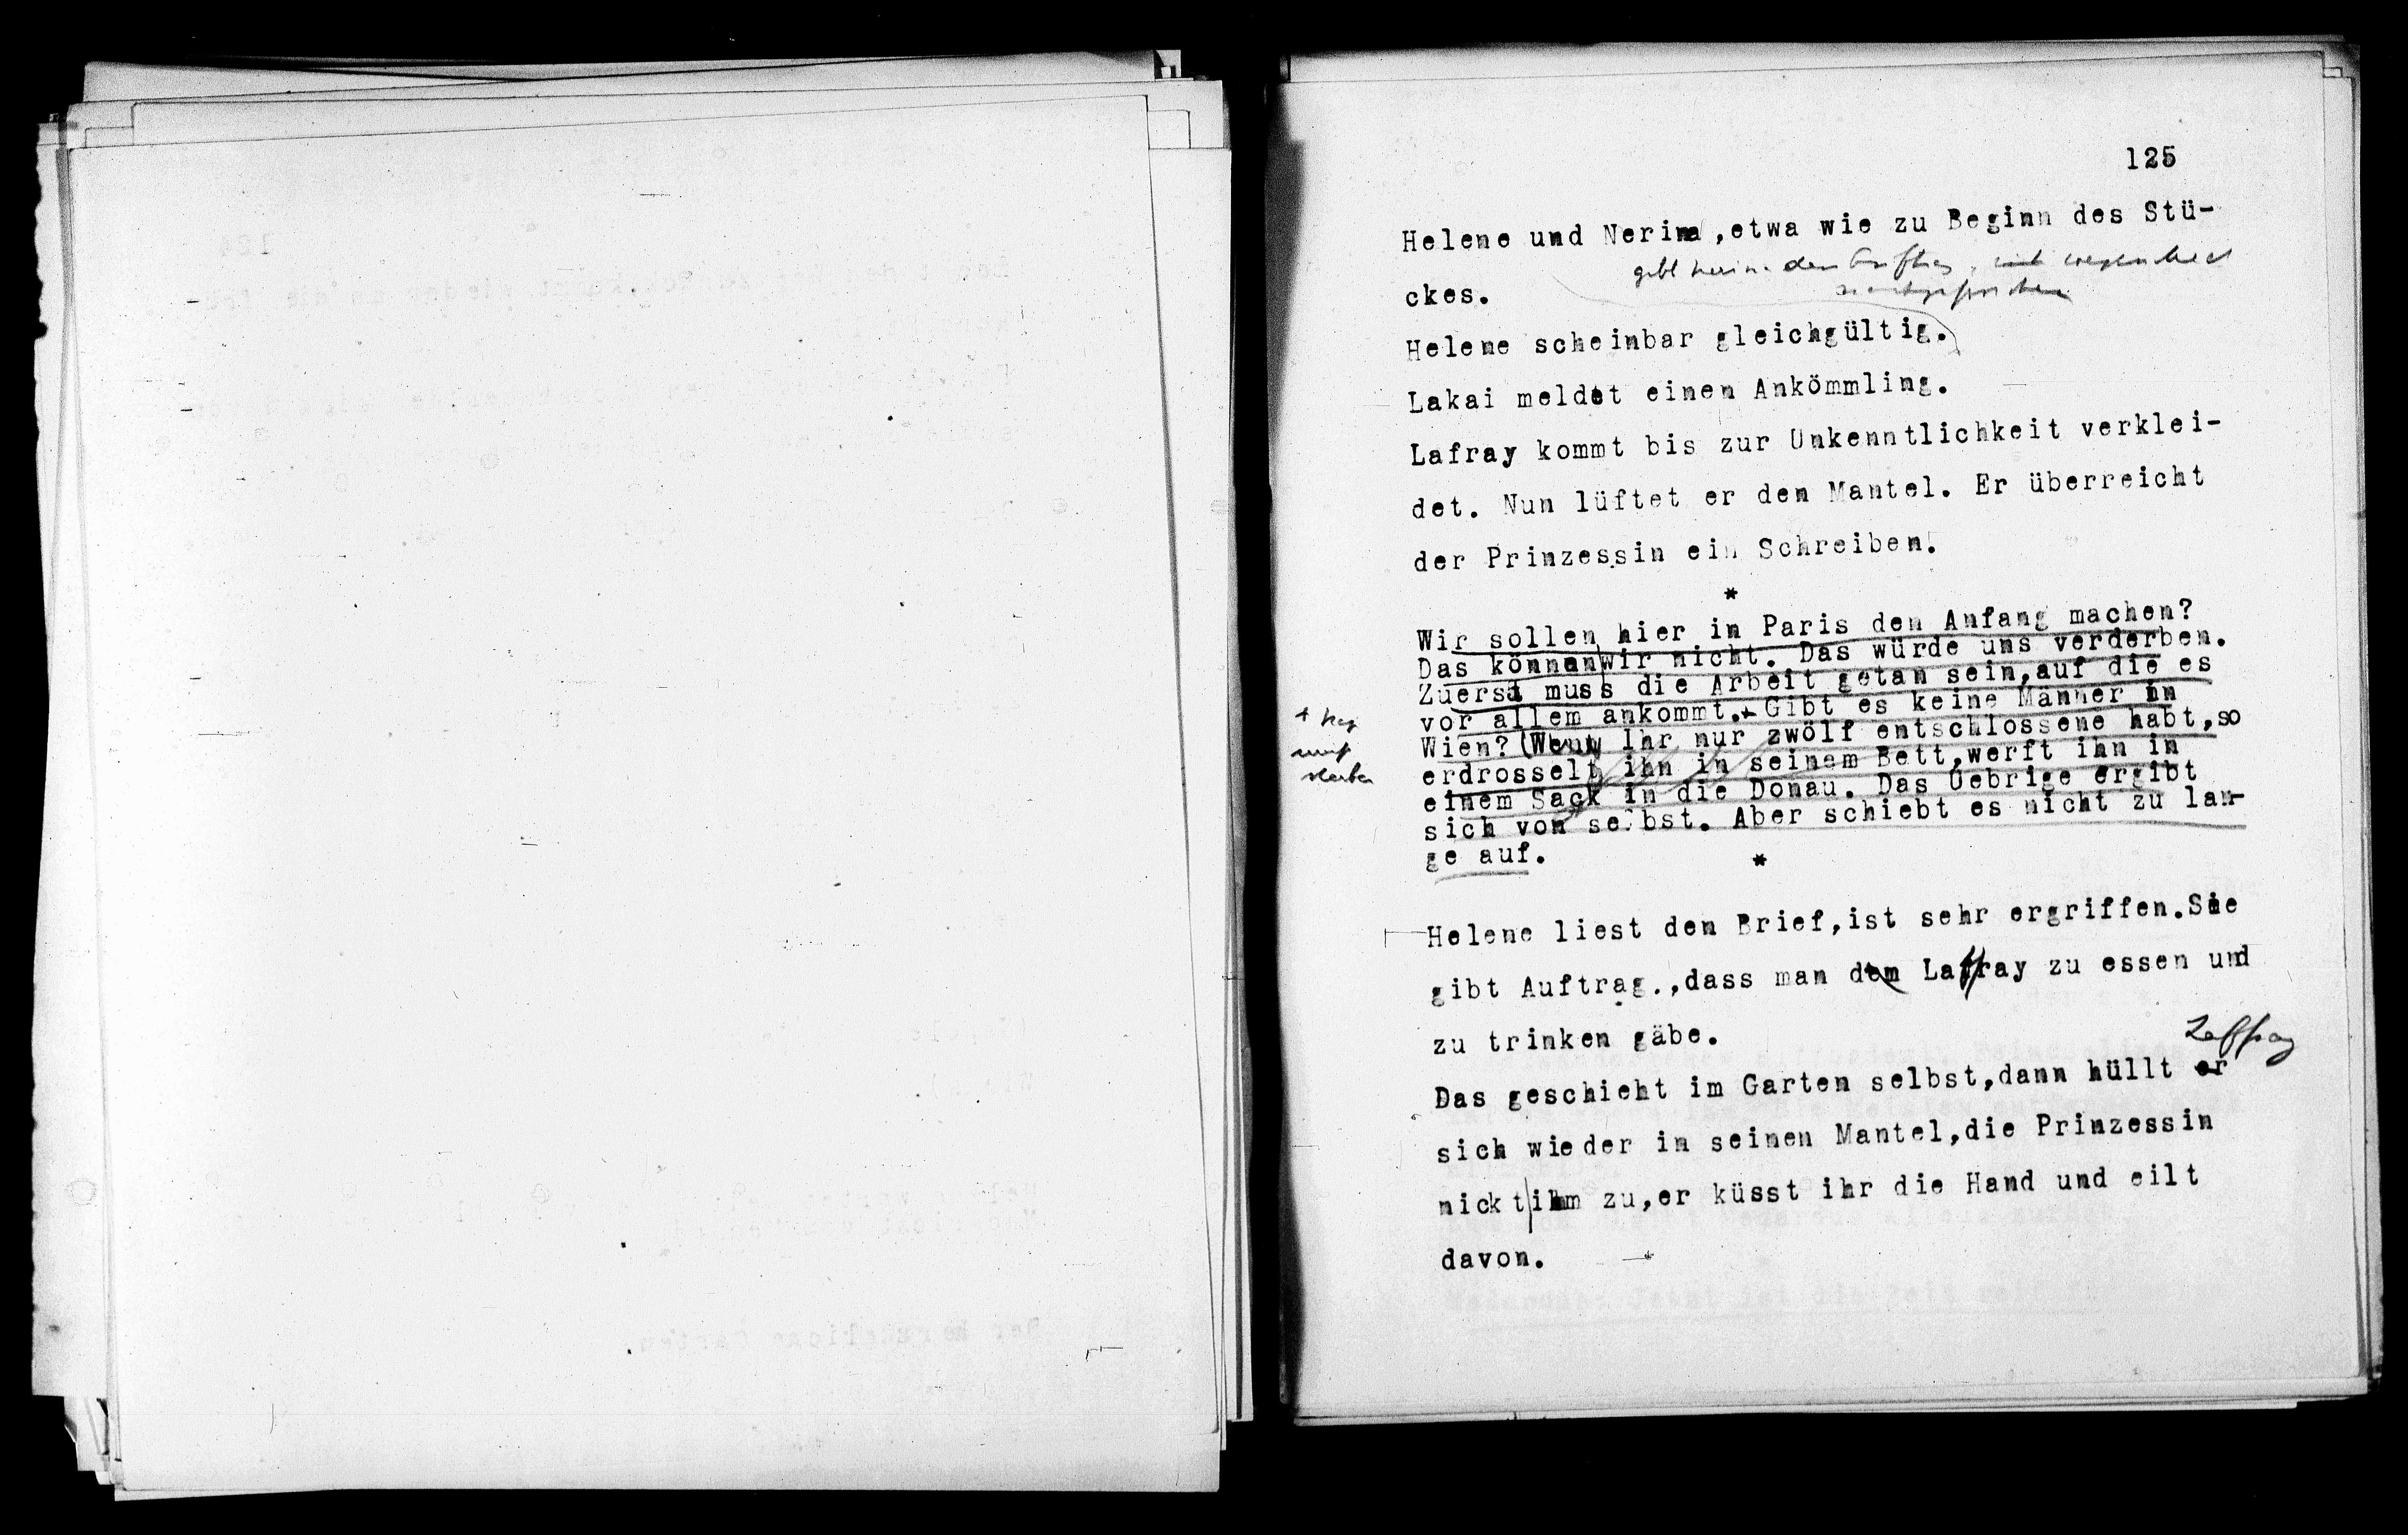 125
Helene und Nerina,etwa wie zu Beginn des Stü-
gibt den Auftrag,
ckes.
Helene scheinbar gleichgültig.
Lakai meldet einen Ankömmling.
Lafray kommt bis zur Unkenntlichkeit verklei-
det. Nun lüftet er den Mantel. Er überreicht
der Prinzessin ein Schreiben.
*
Wir sollen hier in Paris den Anfang machen?
Das können wir nicht. Das würde uns verderben.
Zuerst muss die Arbeit getan sein,auf die es
vor allem ankommt.+ Gibt es keine Männer in
+
muss
sterben
Wien? (Wenn Ihr nur zwölf entschlossene habt,so
erdrosselt ihn in seinem Bett,werft ihn in
einem Sack in die Donau. Das Uebrige ergibt
sich von selbst. Aber schiebt es nicht zu lan-
ge auf.
*
Helene liest den Brief,ist sehr ergriffen.Sie
gibt Auftrag.,dass man dem Laffray zu essen und
zu trinken gäbe.
Laffray
Das geschieht im Garten selbst,dann hüllt er
sich wieder in seinen Mantel,die Prinzessin
nickt ihm zu,er küsst ihr die Hand und eilt
davon.